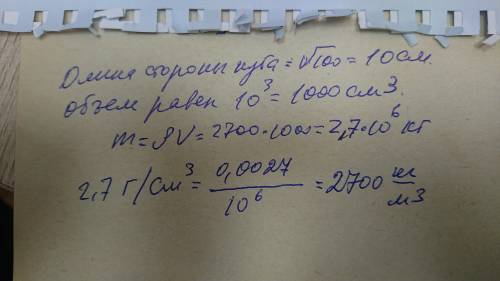 Длина стороны куба = √100 = 10 см.
объем равен 10³ = 1000 см3.
m = ρV = 2700·1000 = 2,7·10⁶ кг
2,7 г/см³ = 0,0027 / 10⁶ = 2700 кг/м3